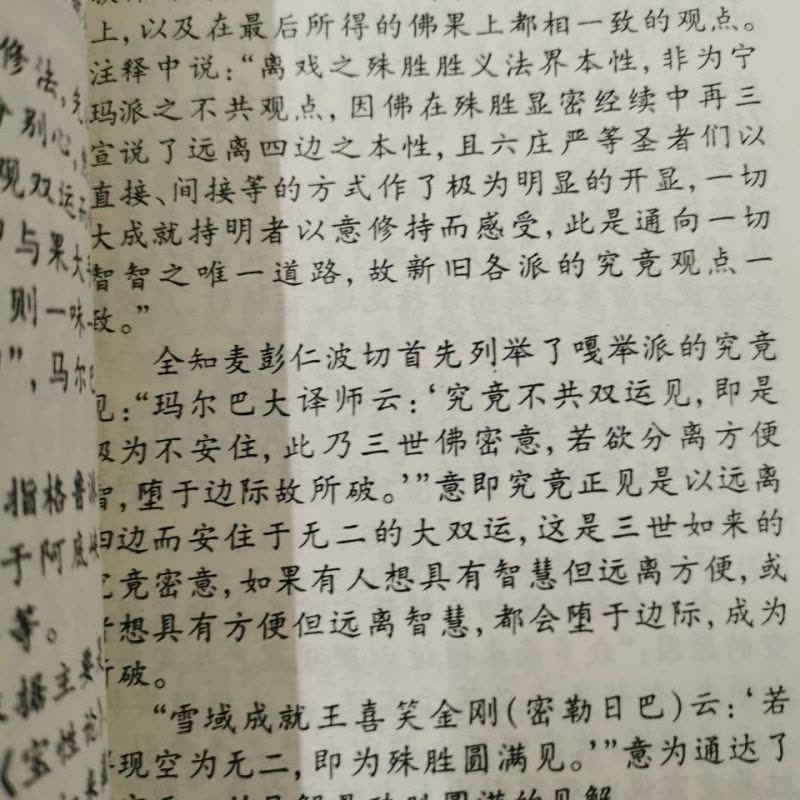 上，以及在最后所得的佛果上都相一致的观点。
注释中说：“离戏之殊胜胜义法界本性，非为宁
玛派之不共观点，因佛在殊胜显密经续中再三
宣说了远离四边之本性，且六庄严等圣者们以
直接、间接等的方式作了极为明显的开显，一切
大成就持明者以意修持而感受，此是通向一切
智智之唯一道路，故新旧各派的究竟观点一
致。”
全知麦彭仁波切首先列举了嘎举派的究竟
见：“玛尔巴大译师云：‘究竟不共双运见，即是
极为不安住，此乃三世佛密意，若欲分离方便
智，堕于边际故所破。’”意即究竟正见是以远离
四边而安住于无二的大双运，这是三世如来的
究竟密意，如果有人想具有智慧但远离方便，或
想具有方便但远离智慧，都会堕于边际，成为
破。
“雪域成就王喜笑金刚（密勒日巴）云：‘若
现空为无二，即为殊胜圆满见。’”意为通达了
修法，
别心，
观双运
与果大
则一味
”，马尔巴
指格鲁
于阿底峡
等。
据主要
《宝性论